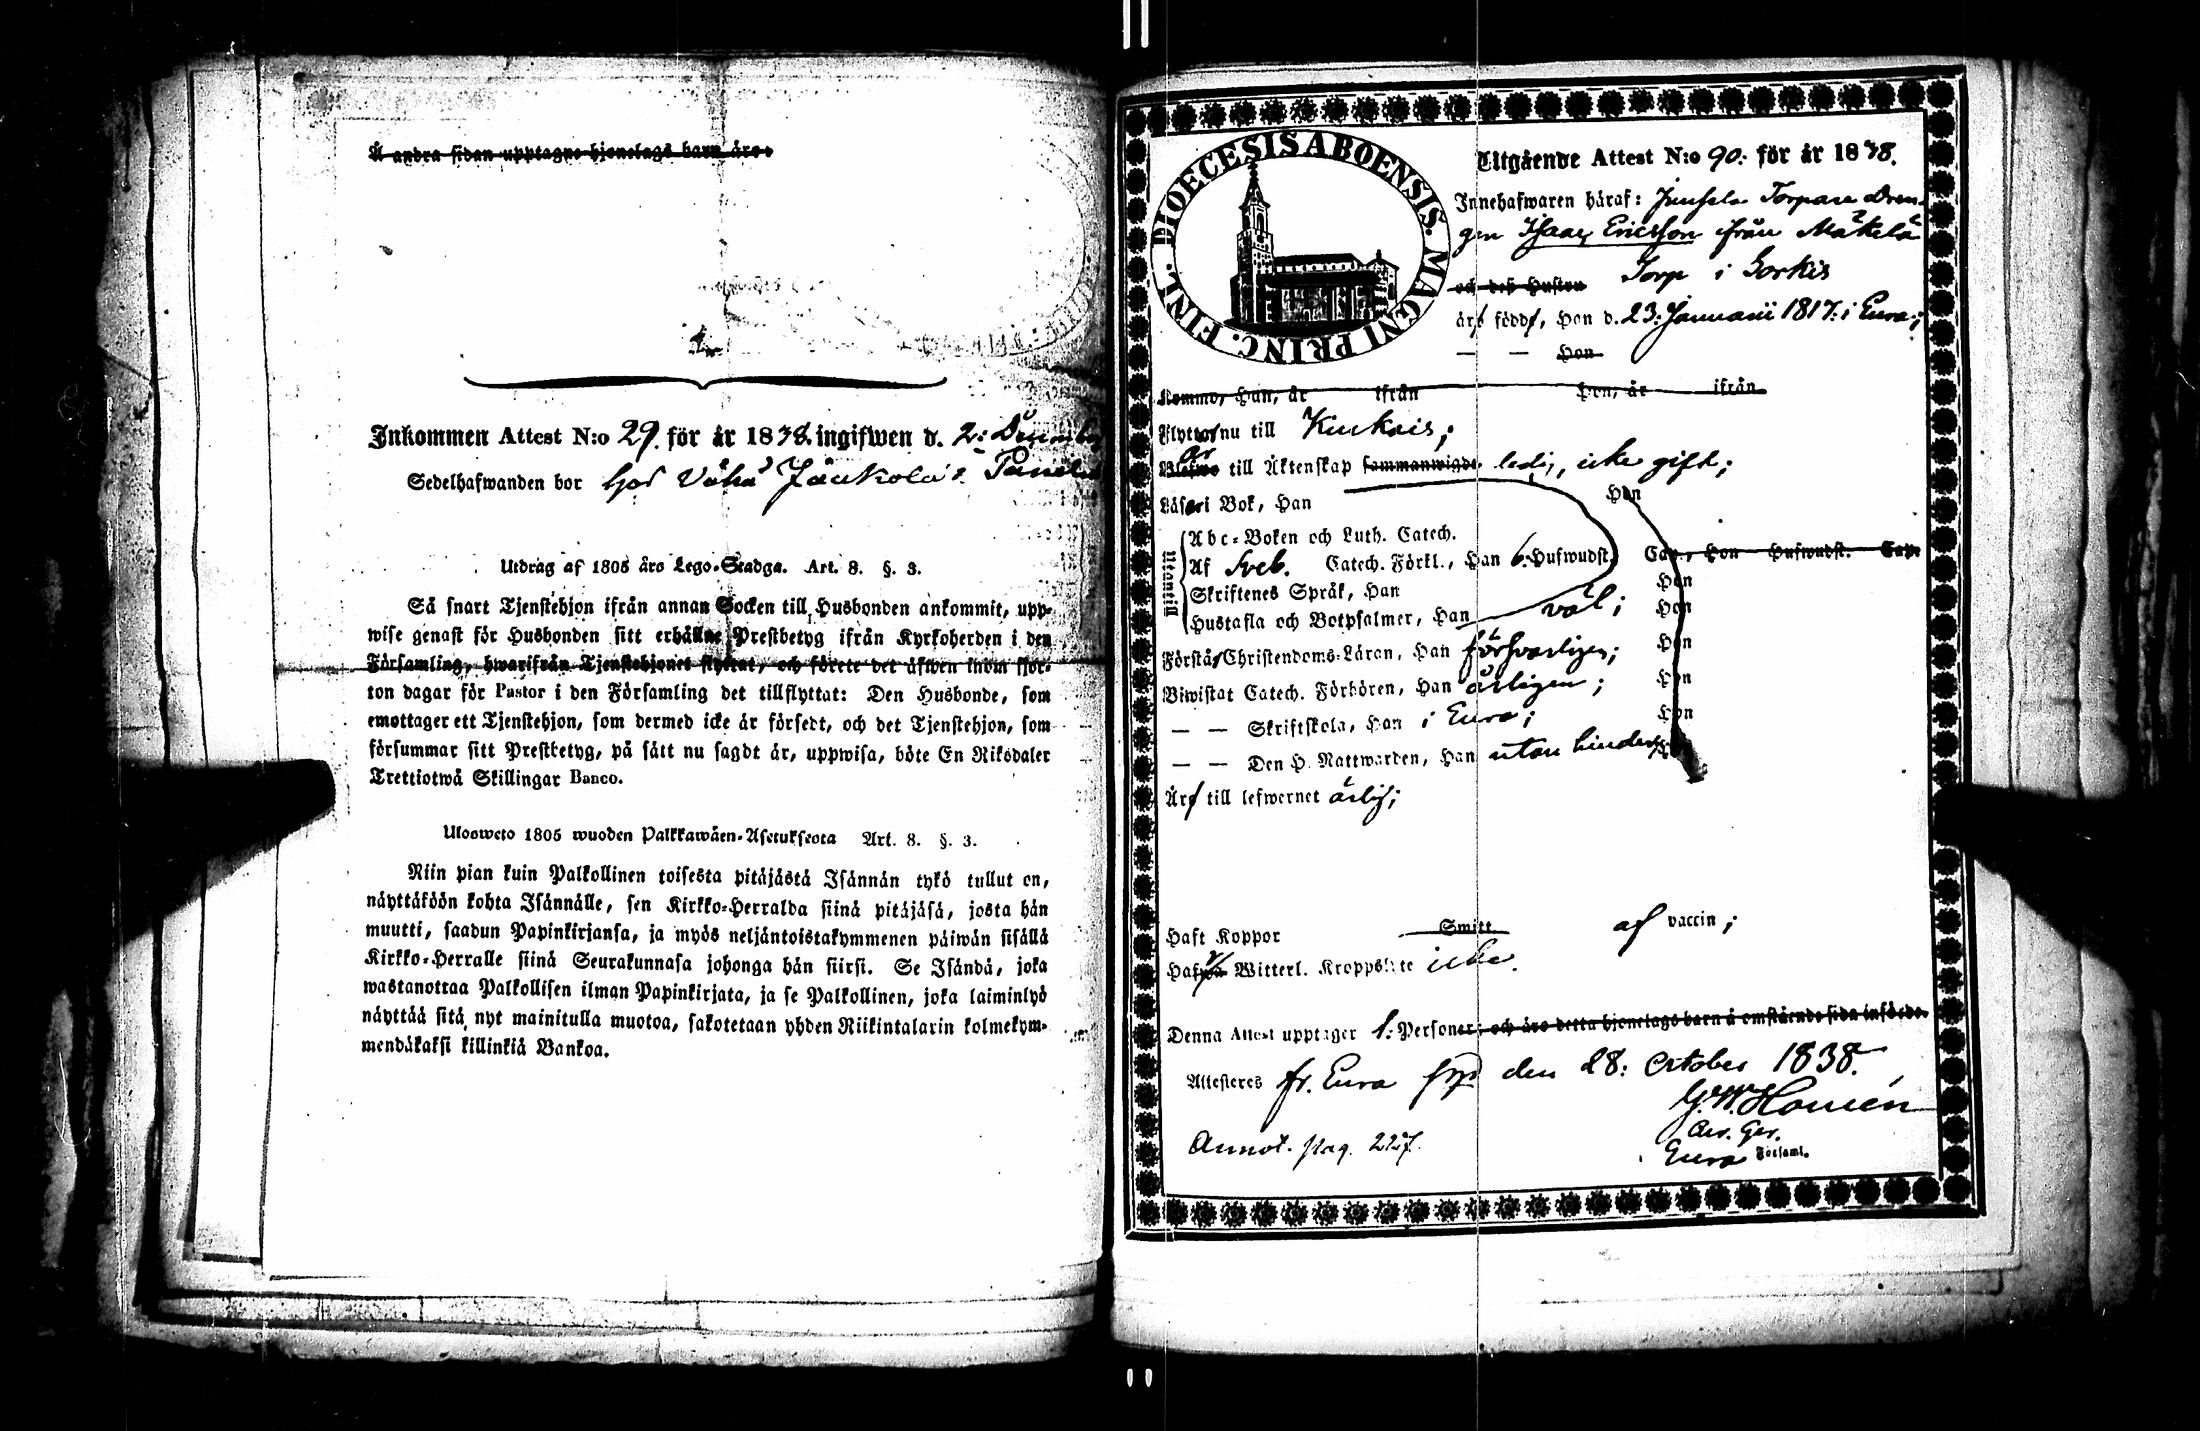 Å andra sidan upptagne hjonelags barn äro:
Inkommen Attest N:o 29. för år 1838. ingifwen d. 2: December
Sedelhafwanden bor hos Vähä Jäukola i Panelia
Utdrag af 1805 års Lego-Stadga. Art. 8. §. 3.
Så snart Tjenstehjon ifrån annan Socken till Husbonden ankommit, upp-
wise genast för Husbonden sitt erhållne Prestbetyg ifrån Kyrkoherden i den
Församling, hwarifrån Tjenstehjonet flyttat, och förete det äfwen inom fjor-
ton dagar för Pastor i den Församling det tillflyttat: Den Husbonde, som
emottager ett Tjenstehjon, som dermed icke är försedt, och det Tjenstehjon, som
försummar sitt Prestbetyg, på sätt nu sagdt är, uppwisa, böte En Riksdaler
Trettiotwå Skillingar Banco.
Ulosweto 1805 wuoden Palkkawäen-Asetuksesta Art. 8. §. 3.
Niin pian kuin Palkollinen toisesta pitäjästä Isännän tykö tullut on,
näyttäköön kohta Isännälle, sen Kirkko-Herralda siinä pitäjäsä, josta hän
muutti, saadun Papinkirjansa, ja myös neljäntoistakymmenen päiwän sisällä
Kirkko-Herralle siinä Seurakunnasa johonga hän siirsi. Se Isändä, joka
wastanottaa Palkollisen ilman Papinkirjata, ja se Palkollinen, joka laiminlyö
näyttää sitä nyt mainitulla muotoa, sakotetaan yhden Riikintalarin kolmekym-
mendäkaksi killinkiä Bankoa.
DIOECESIS ABOENSIS. MAGNI PRINC. FINL.
Utgående Attest N:o 90. för år 1838.
Innehafwaren häraf: Torpare Dren-
gen Isaac Ericsson ifrån Mäkelä
och deß Hustru Torp i Sorkis
äro födde, Han d. 23. Januarii 1817. i Eura;
— — Hon
Komme, Han, år ifrån Hon, år ifrån
Flyttar nu till Kiukais;
Blefwe är till Äktenskap sammanwigde ledig, icke gift;
Läser i Bok, Han Hon
Utantill
Abc-Boken och Luth. Catech.
Af Sveb. Catech. Förkl., Han 6. Hufwudst. Cap., Hon Hufwudst. Cap.
Skriftenes Språk, Han Hon
Hustafla och Botpsalmer, Han väl; Hon
Förstår Christendoms-Läran, Han försvarligen; Hon
Biwistat Catech. Förhören, Han årligen; Hon
— — Skriftskola, Han i Eura; Hon
— — Den H. Nattwarden, Han utan hinder;
Äro till lefwernet ärlig;
Haft Koppor Smitt af vaccin;
Hafwa Witterl. Kroppslyte icke.
Denna Attest upptager 1. Personer; och äro detta hjonelags barn å omstående sida införde.
Attesteres fr. Eura den 28. October 1838.
G. W. Homén
Eura Församl.
Annot. pag. 227.